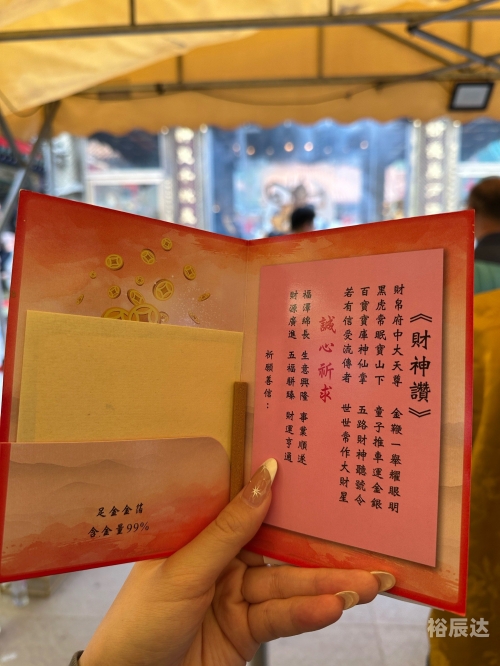 《財神讚》
財帛府中大天尊 金鞭一舉耀眼明
黑虎常眠寶山下 童子推車運金銀
百寶寶庫神仙掌 五路財神聽號令
若有信受流傳者 世世常作大財星
誠心祈求
福澤綿長 生意興隆 事業順遂
財源廣進 五福駢臻 財運亨通
祈願善信：
足金金箔
含金量99%
裕辰达